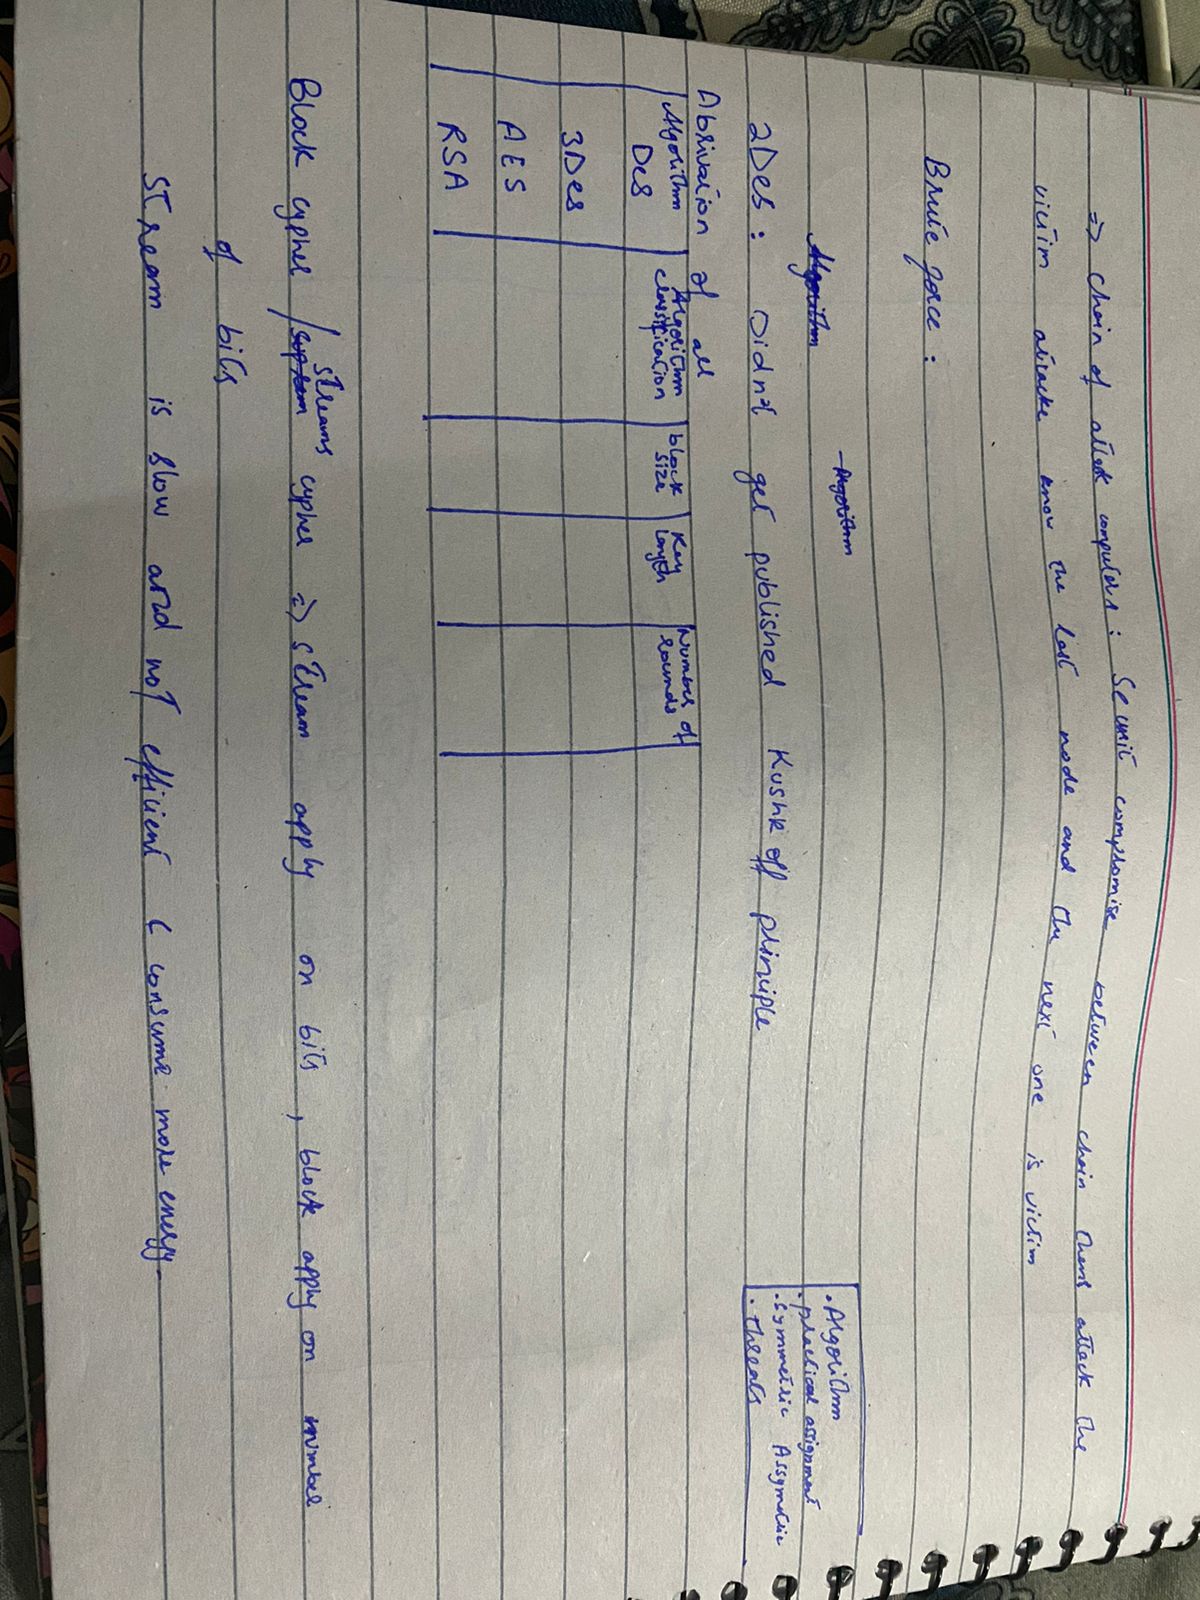 => Chain of attack computers : Se unit compromise between chain thens attack the
victim attacke know the last node and the next one is victim
Brute force :
Algorithm
Algorithm
2Des : Didn't get published Kushk off principle
. Algorithm
. practical assignment
. symmetric Assymetric
. threats
Abrivation of all
Algorithm Algorithm classification block size Key length Number of rounds
Des
3Des
AES
RSA
Block cypher / streams cypher => stream apply on bits , block apply on number
of bits
Stream is slow and not efficient & consume more energy.